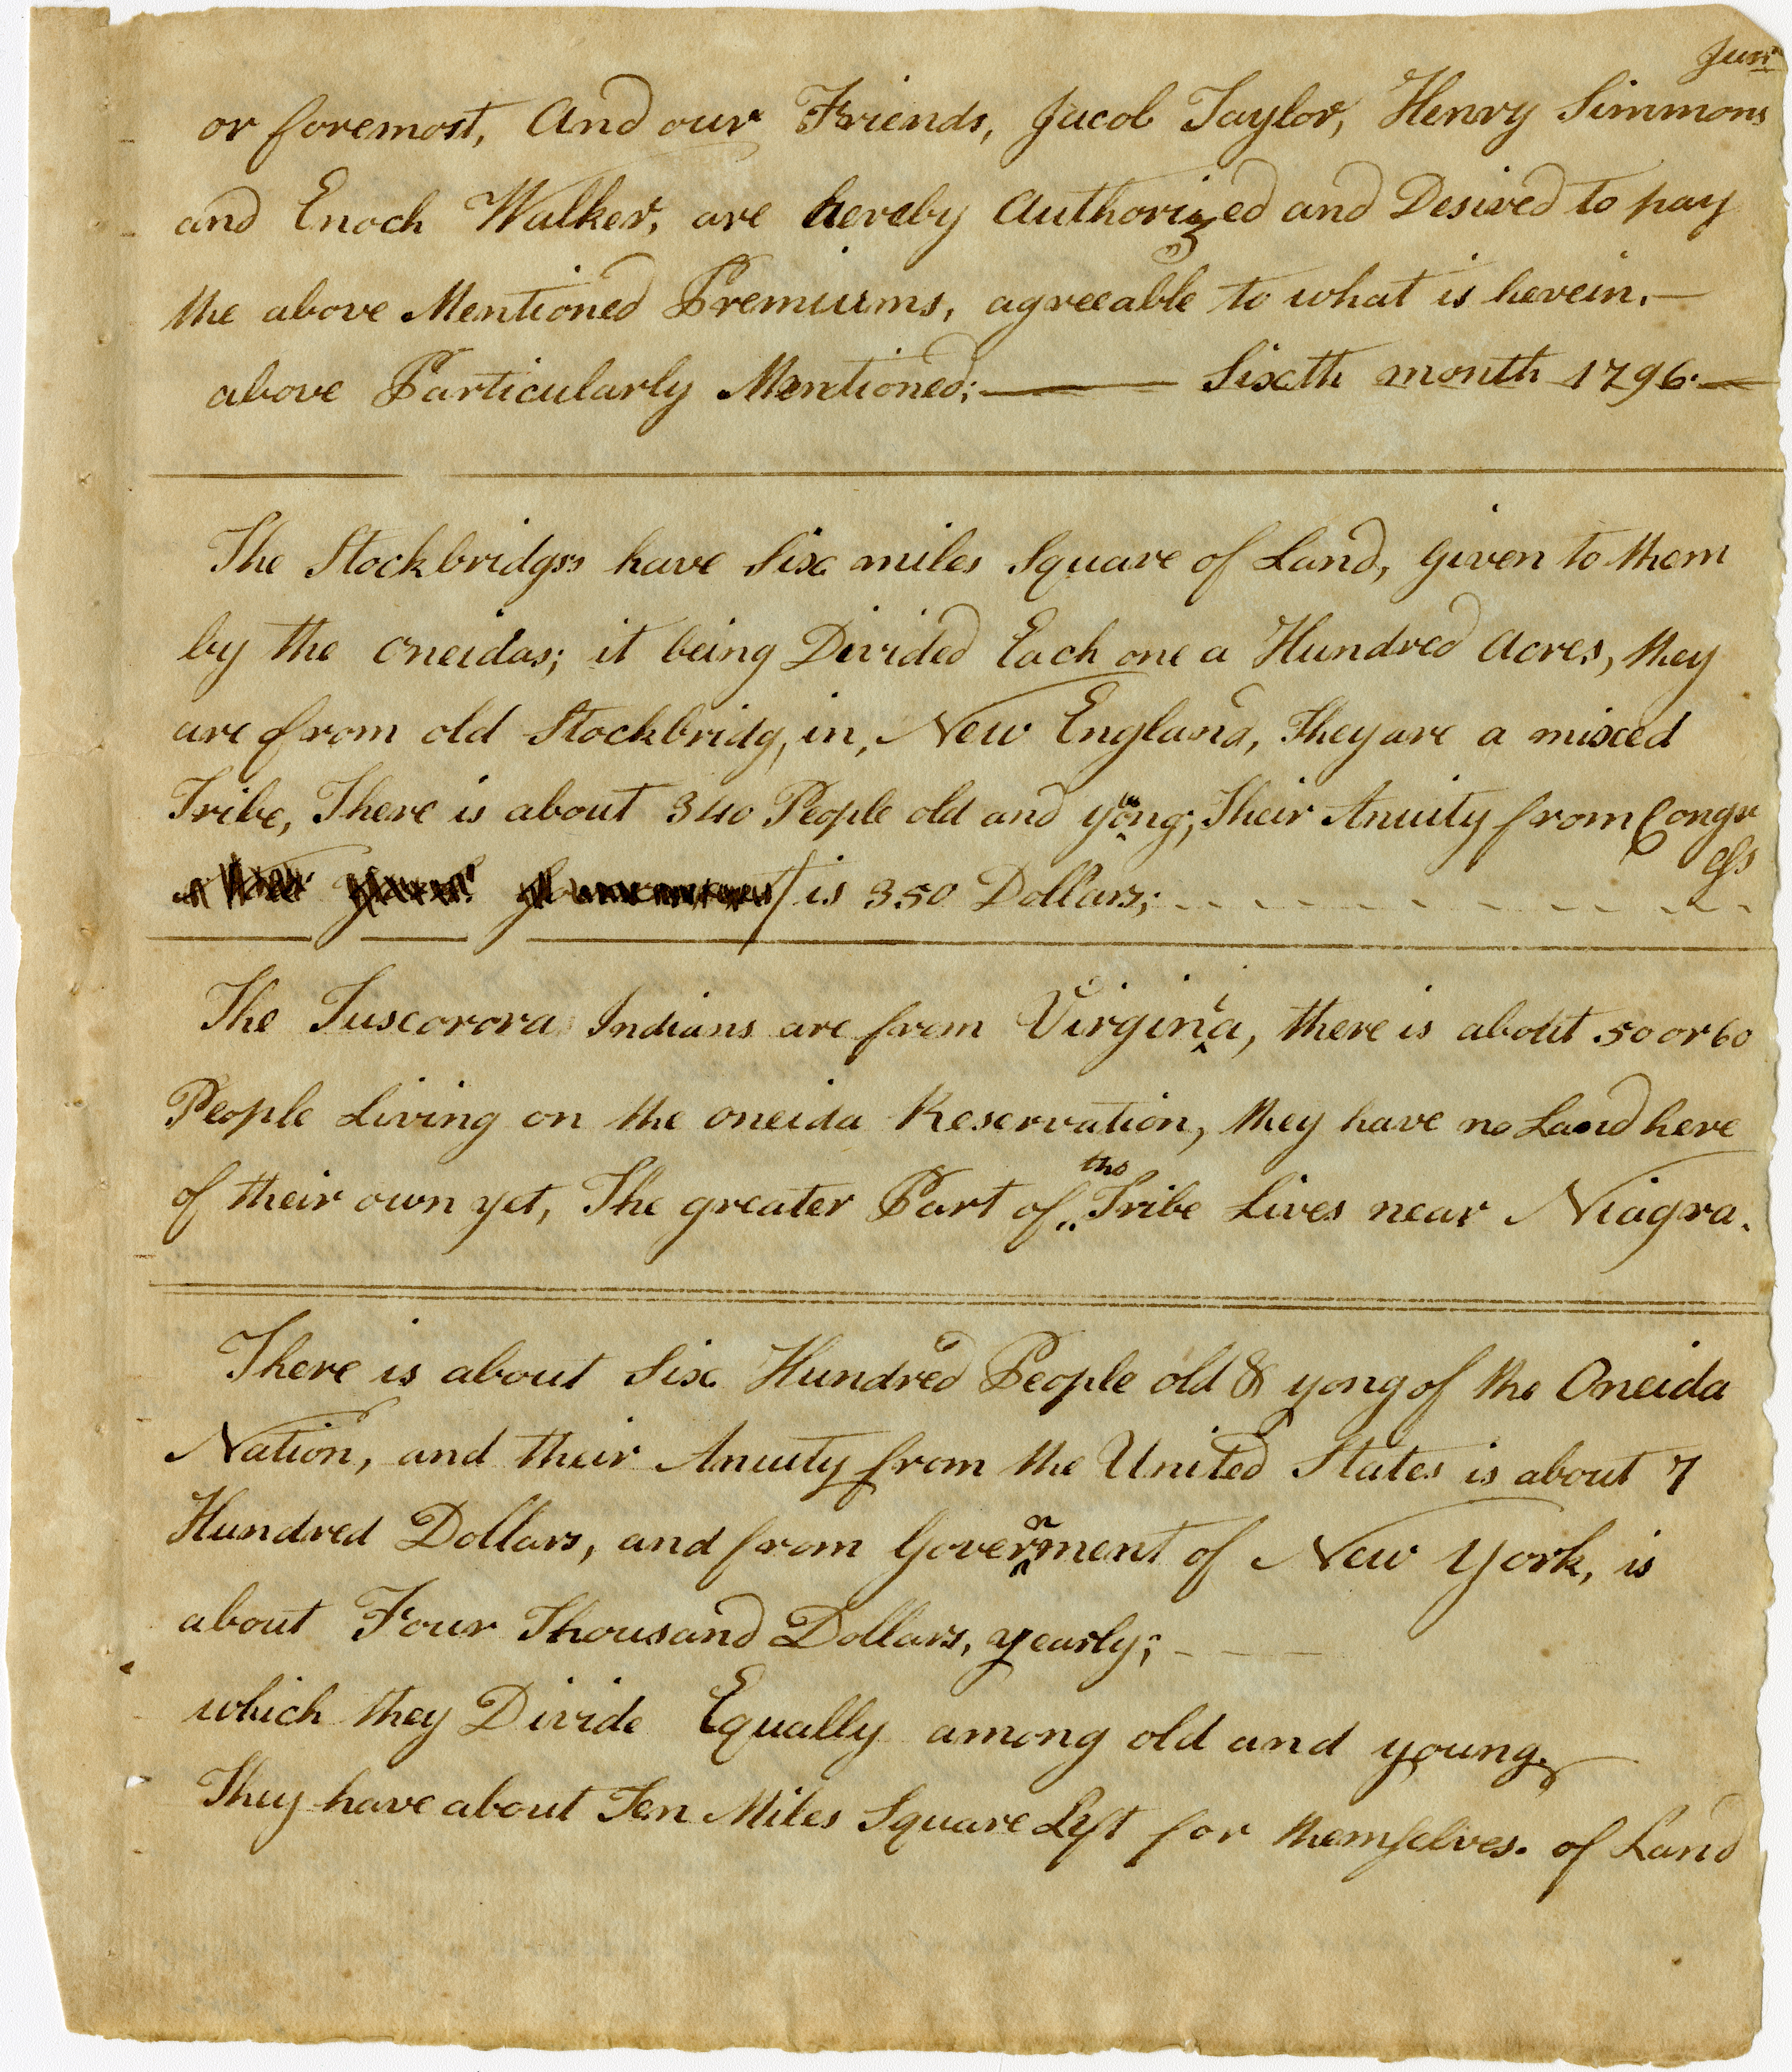 Junr
or foremost, And our Friends, Jacob Taylor, Henry Simmons
and Enoch Walker, are hereby Authorized and Desired to pay
the above Mentioned Premiums, agreeable to what is herein.—
above Particularly Mentioned; —— Sixth month 1796.—
The Stockbridgs have Six miles Square of Land, given to them
by the Oneidas; it being Divided Each one a Hundred Acres, they
are from old Stockbridg, in, New England, They are a mixed
Tribe, There is about 340 People old and young; Their Anuity from Congr
ess
is 350 Dollars; - - - - - - - - - -
The Tuscorora Indians are from Virginia, there is about 50 or 60
People Living on the oneida Reservation, they have no Land here
of their own yet, The greater Part of the Tribe Lives near Niagra.
There is about Six Hundred People old & yong of the Oneida
Nation, and their Anuity from the United States is about 7
Hundred Dollars, and from Government of New York, is
about Four Thousand Dollars, yearly; - — —
which they Divide Equally among old and young.
They have about Ten Miles Square Left for themselves. of Land